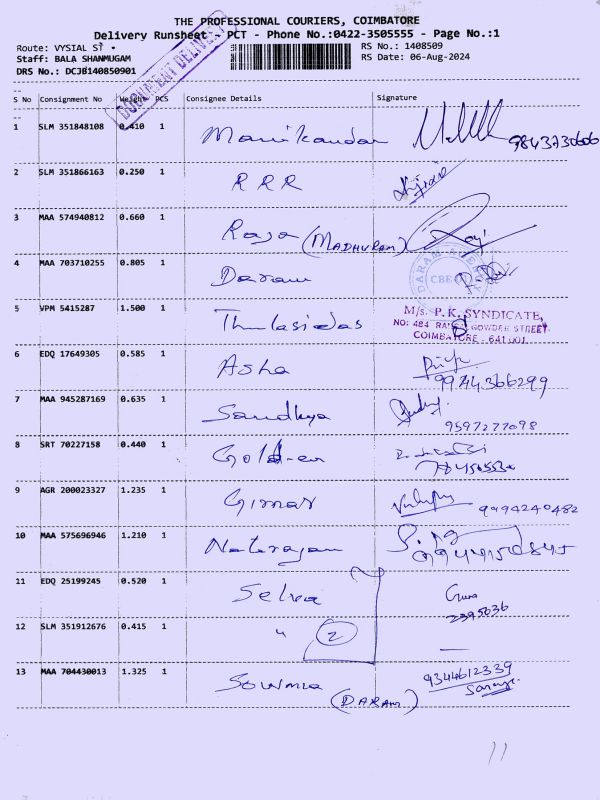 THE PROFESSIONAL COURIERS, COIMBATORE
Delivery Runsheet - PCT - Phone No.:0422-3505555 - Page No.:1
Route: VYSIAL ST
RS No.: 1408509
Staff: BALA SHANMUGAM
RS Date: 06-Aug-2024
DRS No.: DCJB140850901
DOCUMENT DELIVERY
S No Consignment No Weight PCS Consignee Details Signature
1 SLM 351848108 0.410 1 Manikandan 9843730606
2 SLM 351866163 0.250 1 RRR
3 MAA 574940812 0.660 1 Raja (MADHURAM) Raji
4 MAA 703710255 0.805 1 Daram
DARAM AGENCY
CBE
5 VPM 5415287 1.500 1 Thulasidas
M/s. P.K. SYNDICATE,
NO: 484 GOWDER STREET
COIMBATORE - 641 001.
6 EDQ 17649305 0.585 1 Asha
9944366299
7 MAA 945287169 0.635 1 Sandhya
9597277098
8 SRT 70227158 0.440 1 Golden
9 AGR 200023327 1.235 1 Girnar 9994240482
10 MAA 575696946 1.210 1 Natarajan
11 EDQ 25199245 0.520 1 Selva
2395036
12 SLM 351912676 0.415 1 " 2 —
13 MAA 704430013 1.325 1 Sowmia (DARAM) 9344612339